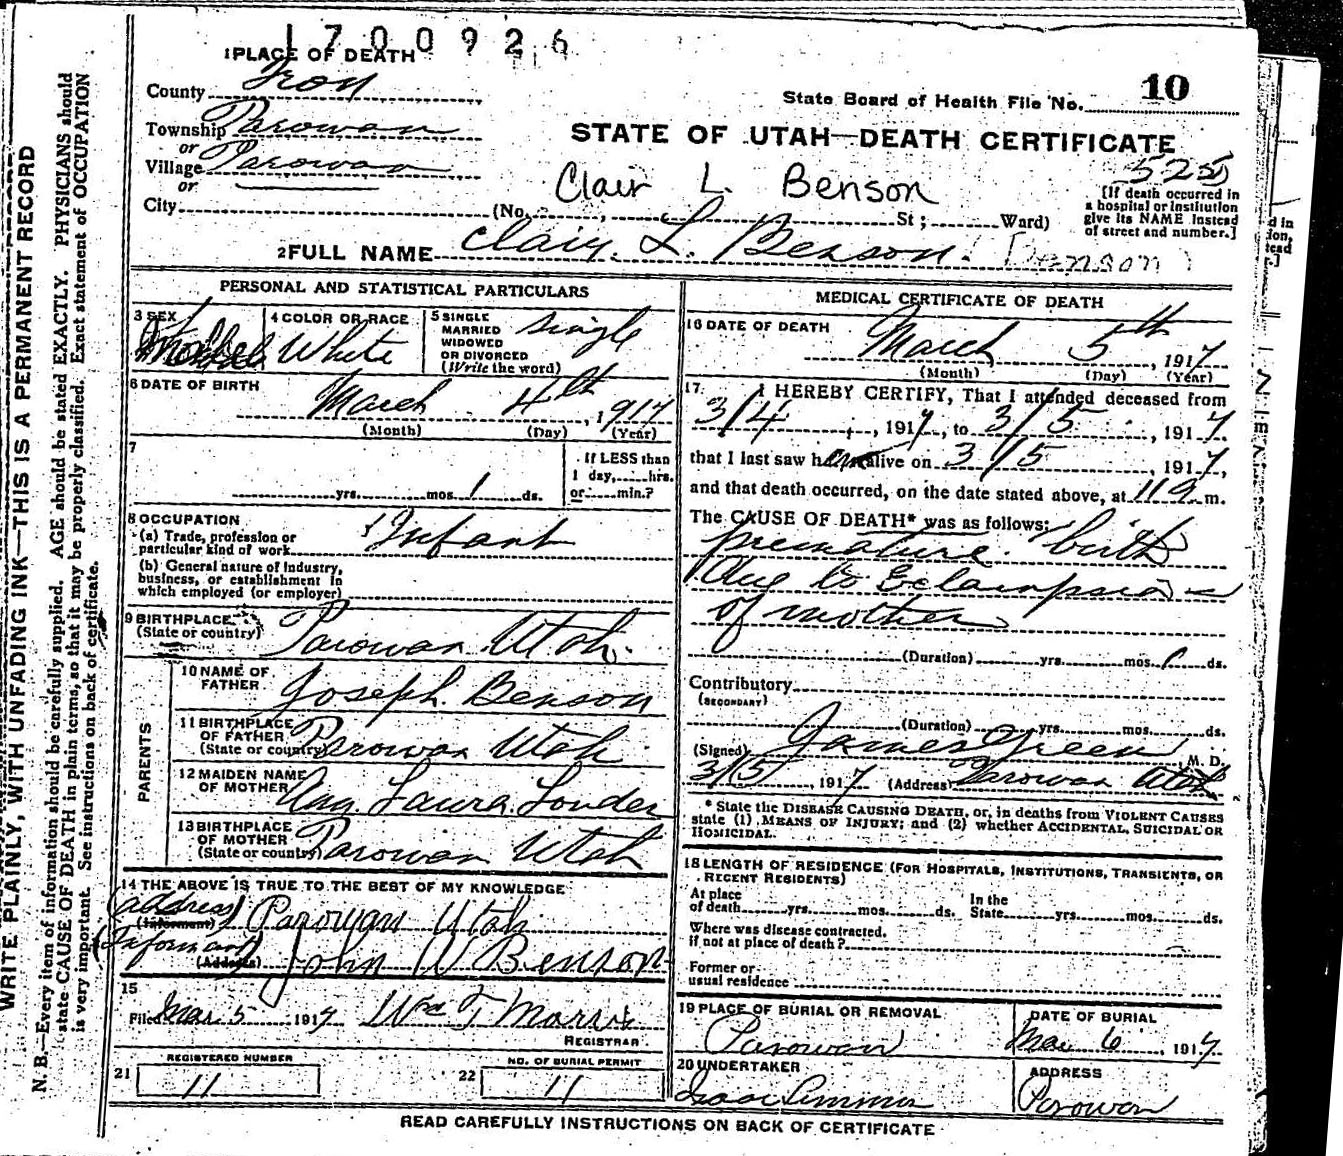 1700926
1 PLACE OF DEATH
County Iron
10
State Board of Health File No.
Township Parowan
STATE OF UTAH—DEATH CERTIFICATE
or
Village Parowan
525
or
Clair L. Benson
[If death occurred in
a hospital or institution
give its NAME instead
of street and number.]
City (No. , St ; Ward)
2 FULL NAME Clair. L. Benson. [Benson]
PERSONAL AND STATISTICAL PARTICULARS
3 SEX
4 COLOR OR RACE White
5 SINGLE
MARRIED
WIDOWED
OR DIVORCED
(Write the word) Single
6 DATE OF BIRTH
March 4th, 1917
(Month) (Day) (Year)
7
yrs. mos. 1 ds.
If LESS than
1 day, hrs.
or min.?
8 OCCUPATION
(a) Trade, profession or
particular kind of work Infant
(b) General nature of industry,
business, or establishment in
which employed (or employer)
9 BIRTHPLACE
(State or country) Parowan Utah.
PARENTS
10 NAME OF
FATHER Joseph Benson
11 BIRTHPLACE
OF FATHER
(State or country) Parowan Utah
12 MAIDEN NAME
OF MOTHER Laura
13 BIRTHPLACE
OF MOTHER
(State or country) Parowan Utah
14 THE ABOVE IS TRUE TO THE BEST OF MY KNOWLEDGE
(address) (Informant) Parowan Utah
(Informant) (Address) John W Benson
15
Filed Mar 5 1917 Wm T Morris
REGISTRAR
REGISTERED NUMBER
NO. OF BURIAL PERMIT
21 11
22 11
MEDICAL CERTIFICATE OF DEATH
16 DATE OF DEATH
March 5th, 1917
(Month) (Day) (Year)
17 I HEREBY CERTIFY, That I attended deceased from
3/4, 1917, to 3/5, 1917,
that I last saw h alive on 3/5, 1917,
and that death occurred, on the date stated above, at m.
The CAUSE OF DEATH* was as follows:
premature birth
due to Eclampsia
of mother
(Duration) yrs. mos. 1 ds.
Contributory
(SECONDARY)
(Duration) yrs. mos. ds.
(Signed) James Green, M. D.
3/5, 1917 (Address) Parowan Utah
* State the DISEASE CAUSING DEATH, or, in deaths from VIOLENT CAUSES
state (1) MEANS OF INJURY; and (2) whether ACCIDENTAL, SUICIDAL OR
HOMICIDAL.
18 LENGTH OF RESIDENCE (FOR HOSPITALS, INSTITUTIONS, TRANSIENTS, OR
RECENT RESIDENTS)
At place
of death yrs. mos. ds.
In the
State yrs. mos. ds.
Where was disease contracted,
if not at place of death?
Former or
usual residence
19 PLACE OF BURIAL OR REMOVAL
Parowan
DATE OF BURIAL
Mar 6, 1917
20 UNDERTAKER
ADDRESS
Parowan
READ CAREFULLY INSTRUCTIONS ON BACK OF CERTIFICATE
WRITE PLAINLY, WITH UNFADING INK—THIS IS A PERMANENT RECORD
N. B.—Every item of information should be carefully supplied. AGE should be stated EXACTLY. PHYSICIANS should
state CAUSE OF DEATH in plain terms, so that it may be properly classified. Exact statement of OCCUPATION
is very important. See instructions on back of certificate.